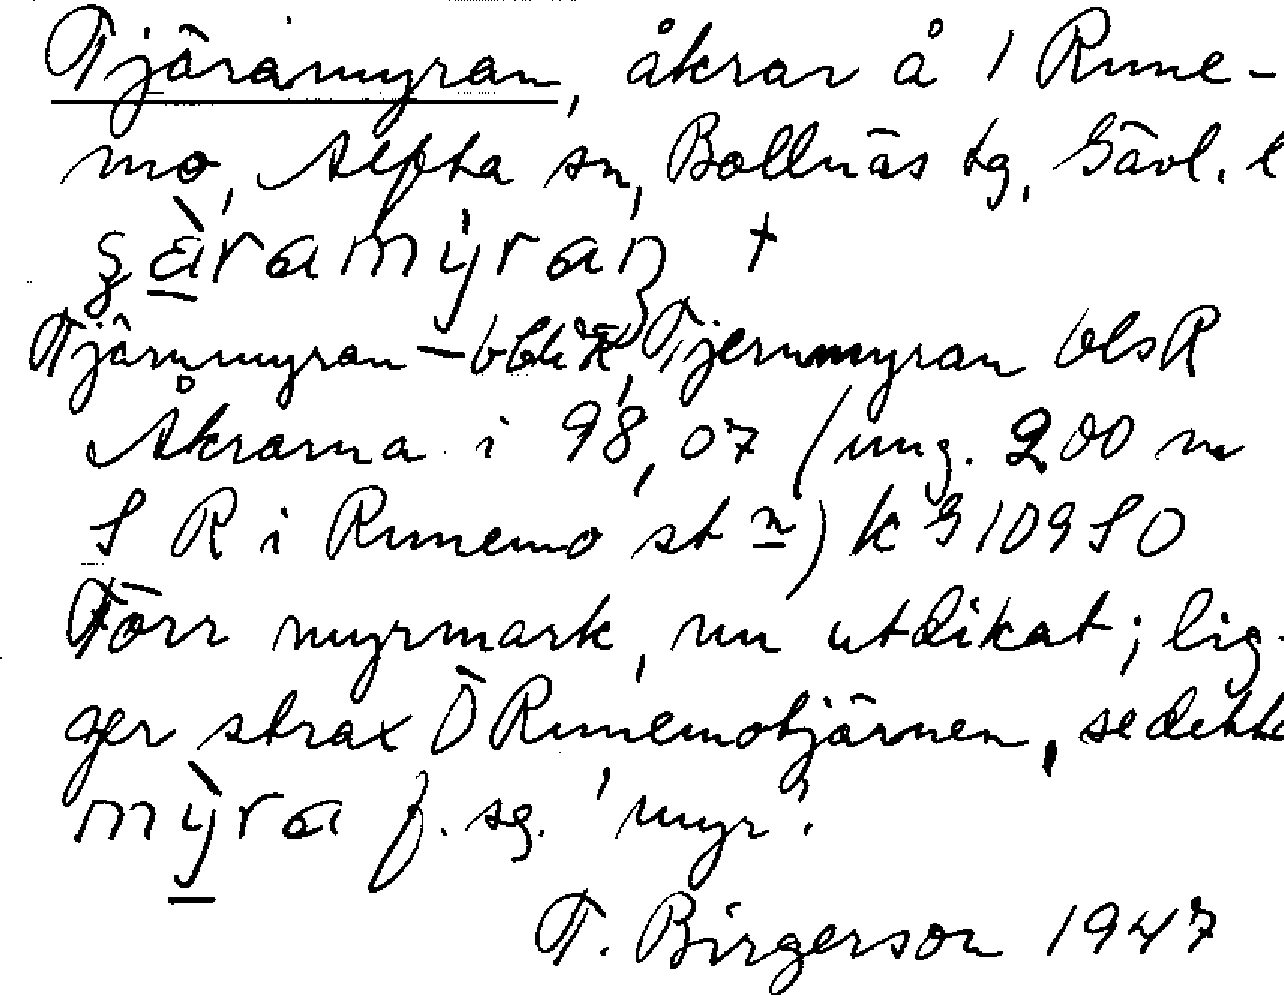 Tjäramyran, åkrar å 1 Rune-
mo, Alfta sn, Bollnäs tg, Gävl. l
Tjärnmyran Tjernmyran blsR
Åkrarna i 98,07 (ung. 200 m
S R i Runemo stn) k 3109 SO
Förr myrmark, nu utdikat; lig-
ger strax Ö Runemotjärnen, se detta
mỳra f. sg. 'myr'.
T. Birgerson 1947